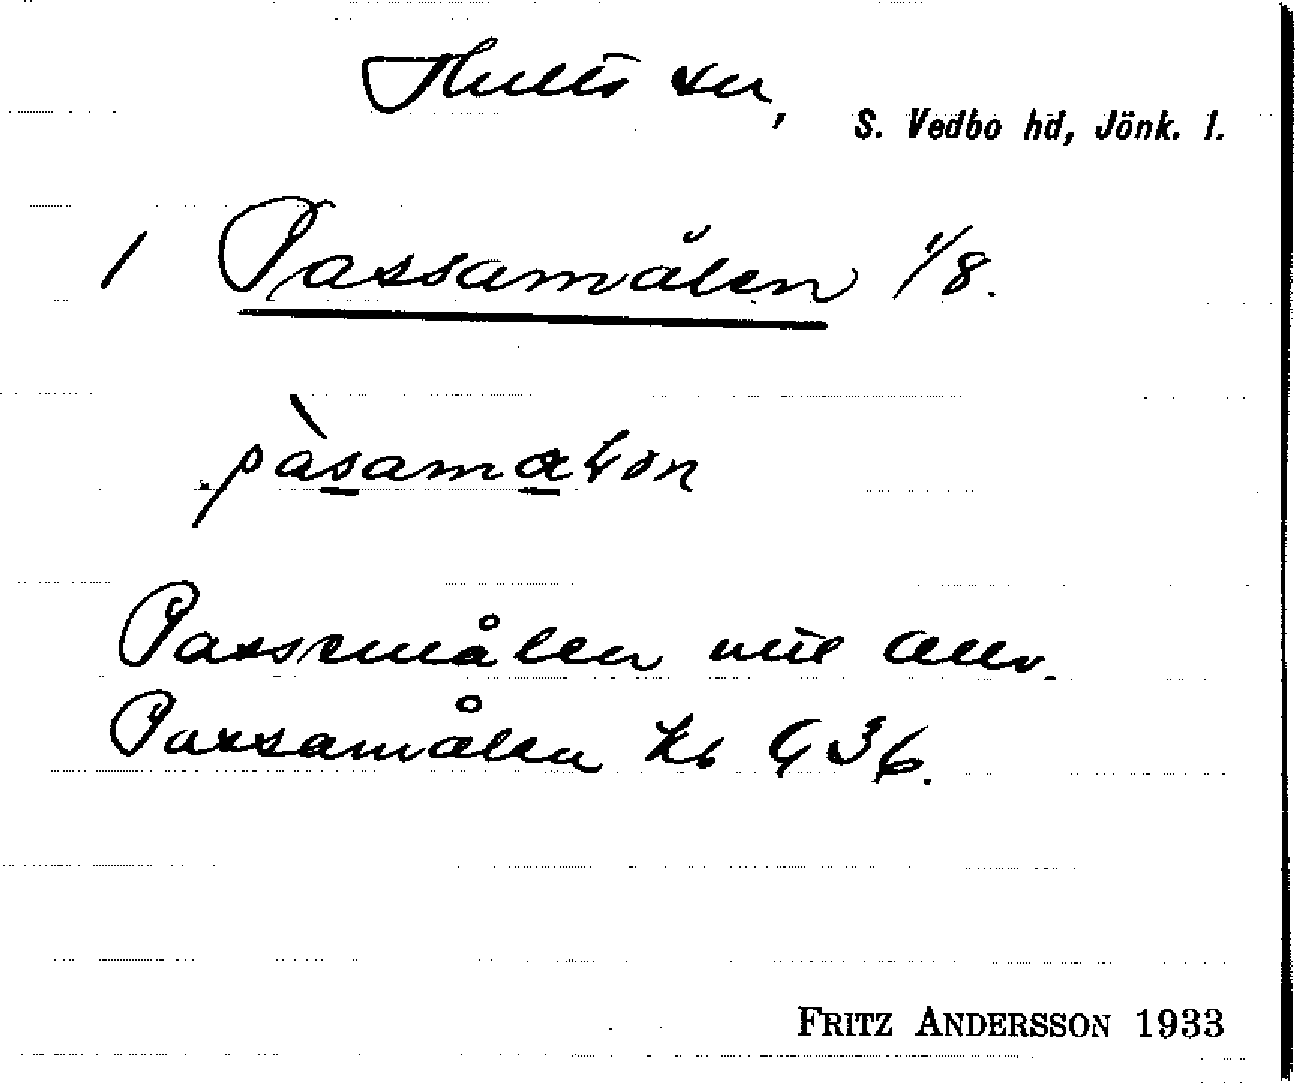 Hults sn, S. Vedbo hd, Jönk. l.
1 Passamålen 1/8.
pàsamaɬən
Passemålen mtl
Passamålen kb G36.
FRITZ ANDERSSON 1933